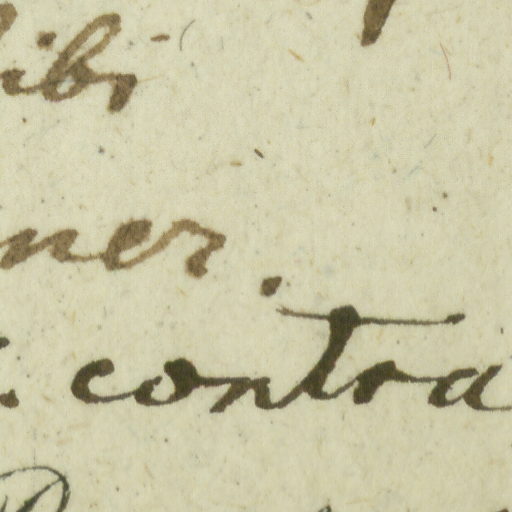 ibi
ner.
. contra